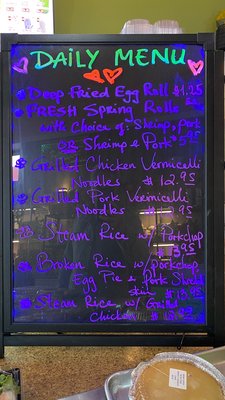 DAILY MENU
Deep Fried Egg Roll $1.25
FRESH Spring Rolls
with Choice of: Shrimp, Pork
OR Shrimp & Pork $5.95
Grilled Chicken Vermicelli
Noodles $12.95
Grilled Pork Vermicelli
Noodles $ .95
Steam Rice w/ Porkchop
$13.95
Broken Rice w/ Porkchop
Egg Pie & Pork Shred
skin $18.95
Steam Rice w/ Grilled
Chicken $